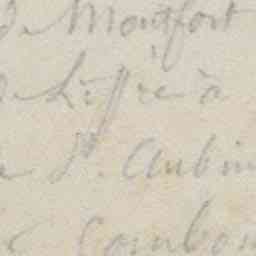 de Montfort
de Liffré à
St. Aubin
Combou